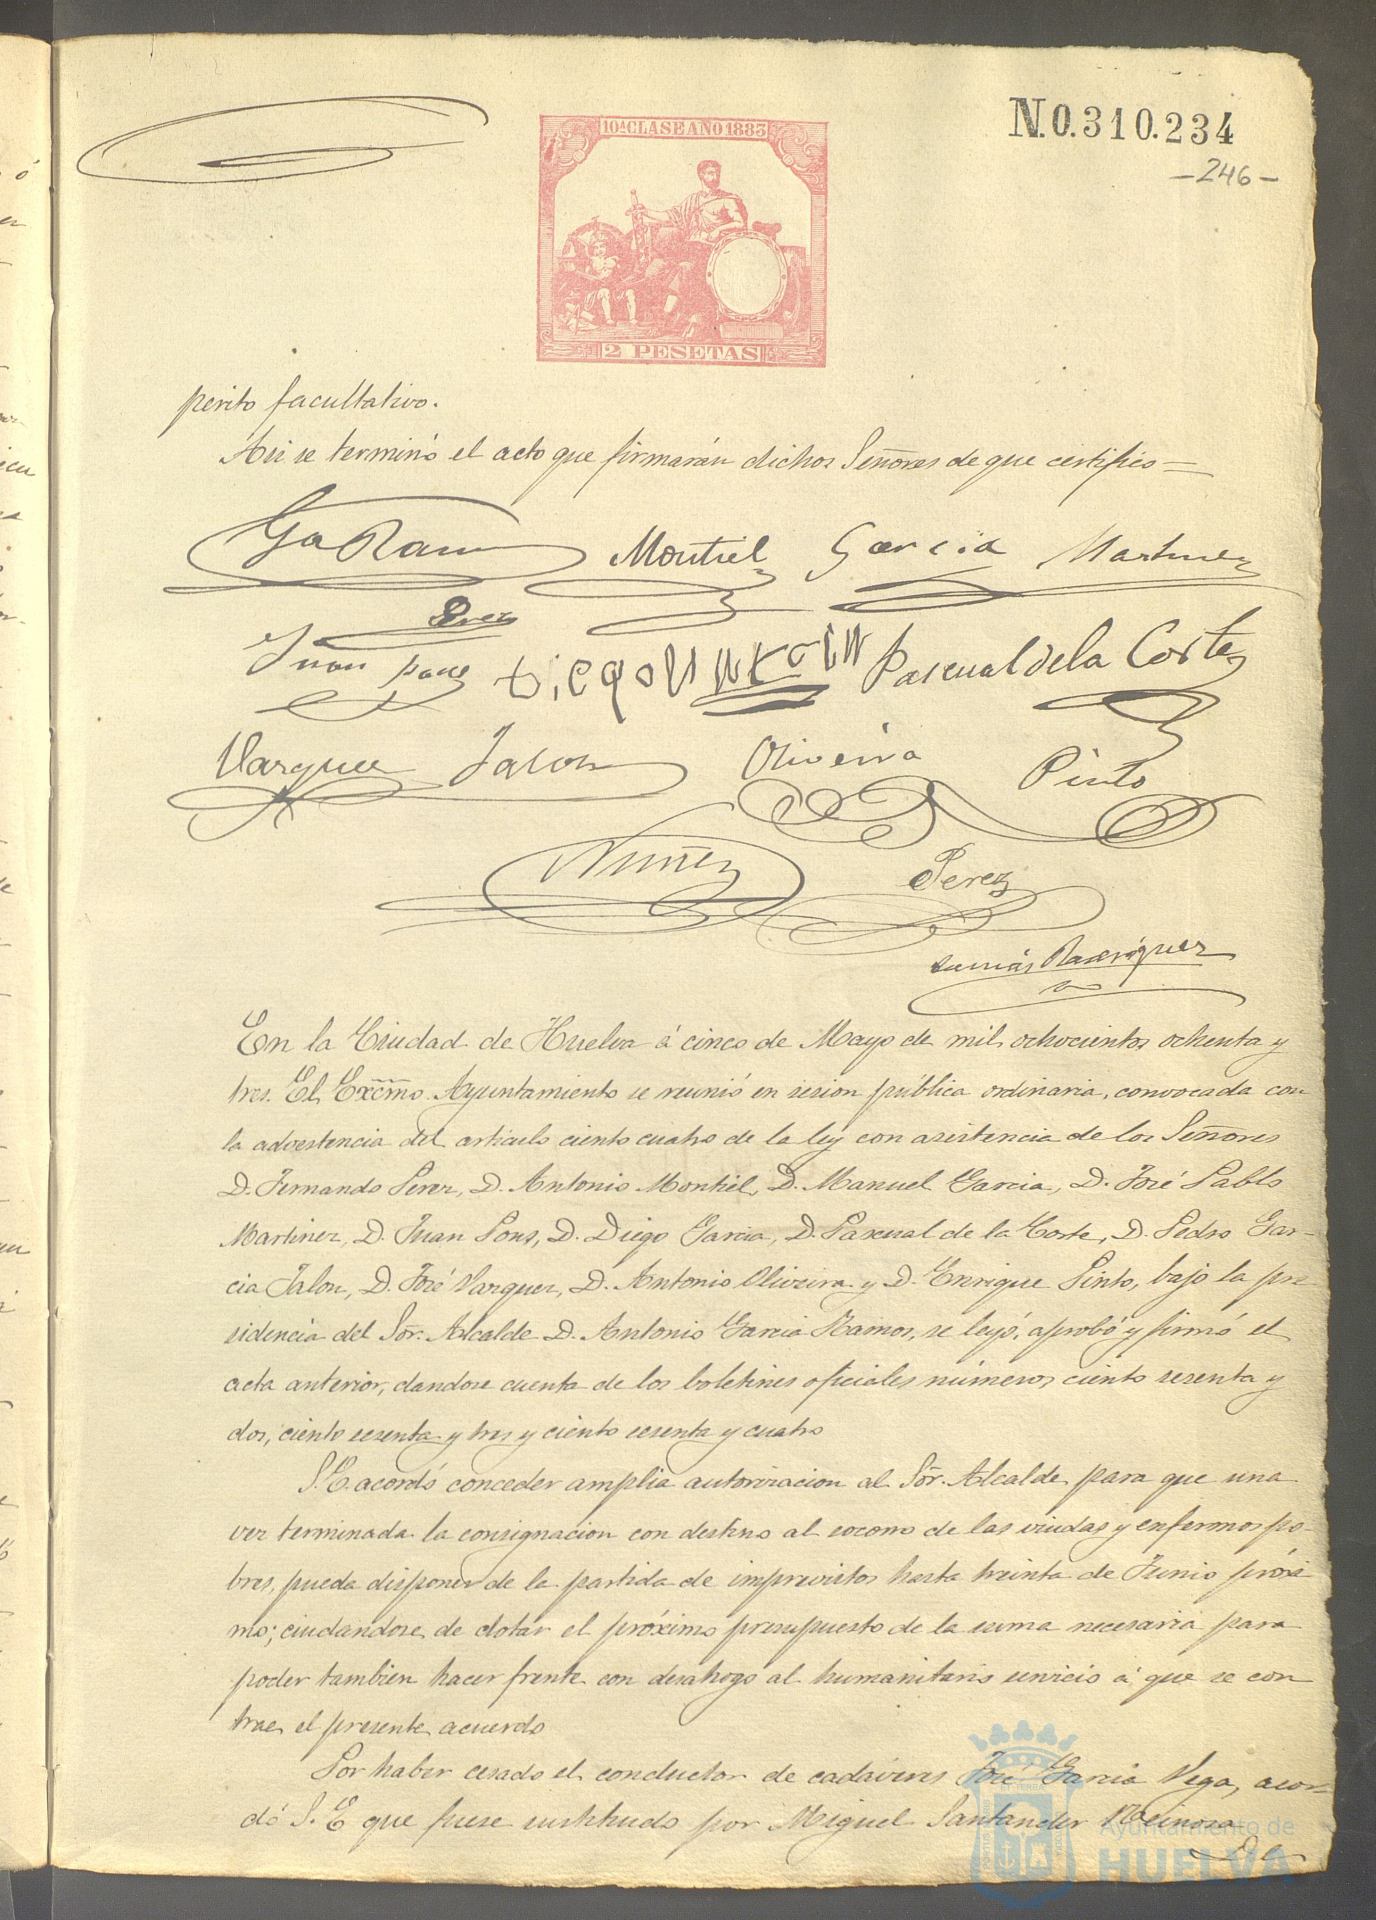 10ª CLASE AÑO 1883
N.0.310.234
-246-
2 PESETAS
perito facultativo.
Asi se terminó el acto que firmarán dichos Señores de que certifico=
Ga Ram Montiel Garcia Martinez
Perez
Juan Pons Diego Garcia Pascual de la Corte
Vazquez Jalon Oliveira Pinto
Nuñez Perez
Tomás Rodriguez
En la Ciudad de Huelva á cinco de Mayo de mil ochocientos ochenta y
tres. El Excmo. Ayuntamiento se reunió en sesion pública ordinaria, convocada con
la advertencia del articulo ciento cuatro de la ley con asistencia de los Señores
D. Fernando Perez, D. Antonio Montiel, D. Manuel Garcia, D. José Pablo
Martinez, D. Juan Pons, D. Diego Garcia, D. Pascual de la Corte, D. Pedro Gar-
cia Jalon, D. José Vazquez, D. Antonio Oliveira y D. Enrique Pinto, bajo la pre-
sidencia del Sor. Alcalde D. Antonio Garcia Ramos, se leyó, aprobó y firmó el
acta anterior, dandose cuenta de los boletines oficiales números ciento sesenta y
dos, ciento sesenta y tres y ciento sesenta y cuatro
S.E. acordó conceder amplia autorizacion al Sor. Alcalde para que una
vez terminada la consignacion con destino al socorro de las viudas y enfermos po-
bres, pueda disponer de la partida de imprevistos hasta treinta de Junio próxi
mo; ciudandose de dotar el próximo presupuesto de la suma necesaria para
poder tambien hacer frente con desahogo al humanitario servicio á que se con
trae el presente acuerdo
Por haber cesado el conductor de cadáveres José Garcia Vega, acor-
dó S.E que fuese sustituido por Miguel Santander Reinosa
De
Ayuntamiento de
HUELVA